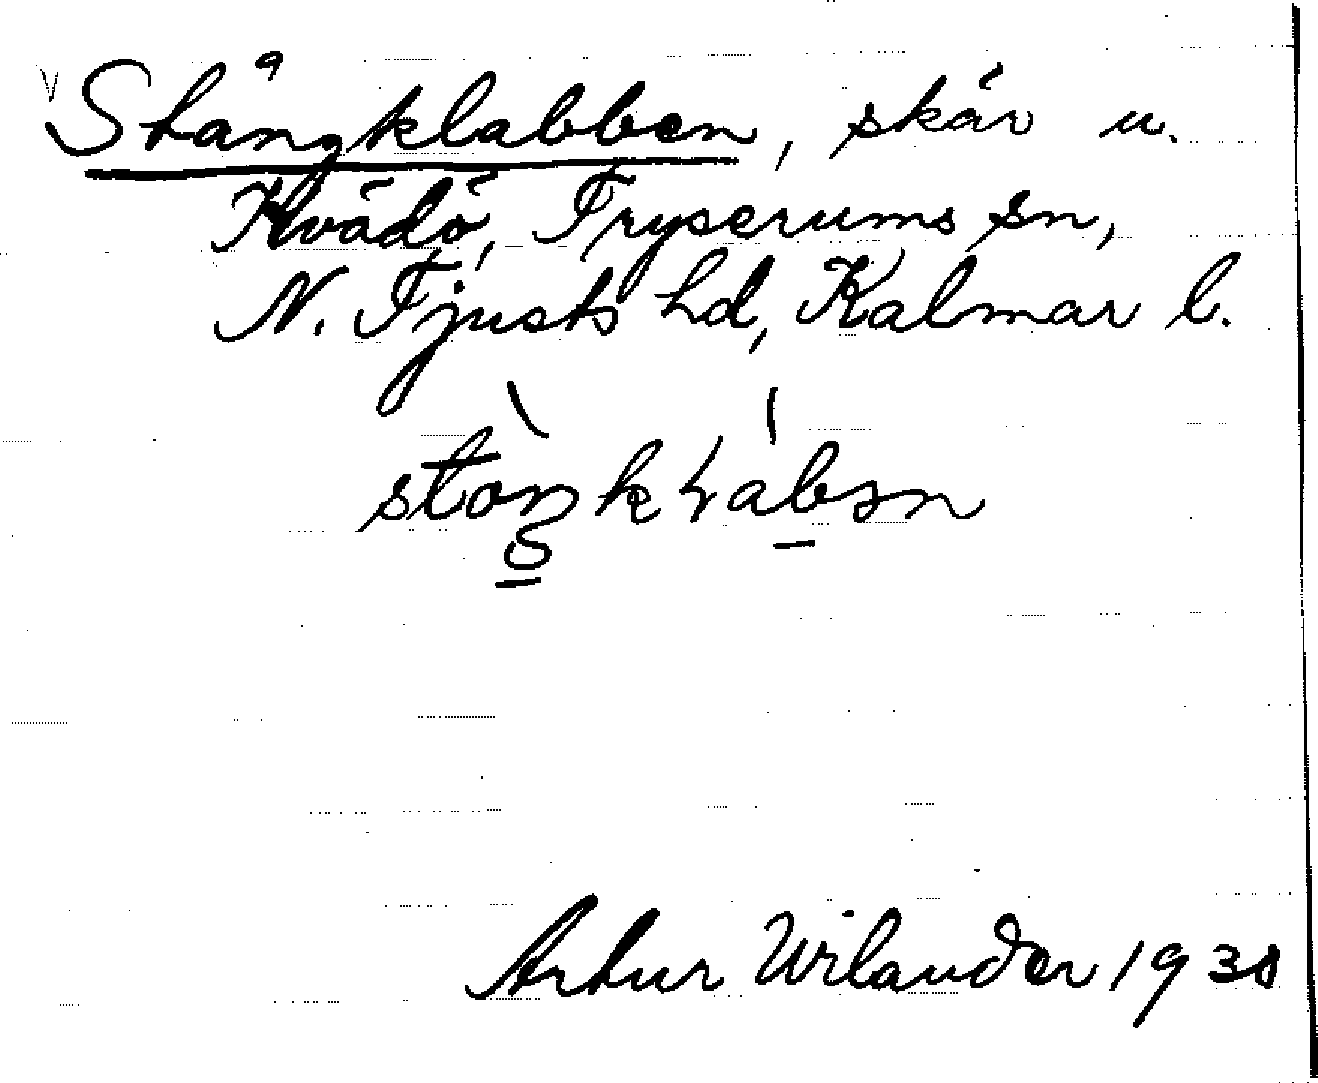 Stångklabben, skär u.
Kvädö, Tryserums sn,
N. Tjusts hd, Kalmar l.
Artur Wilander 1938